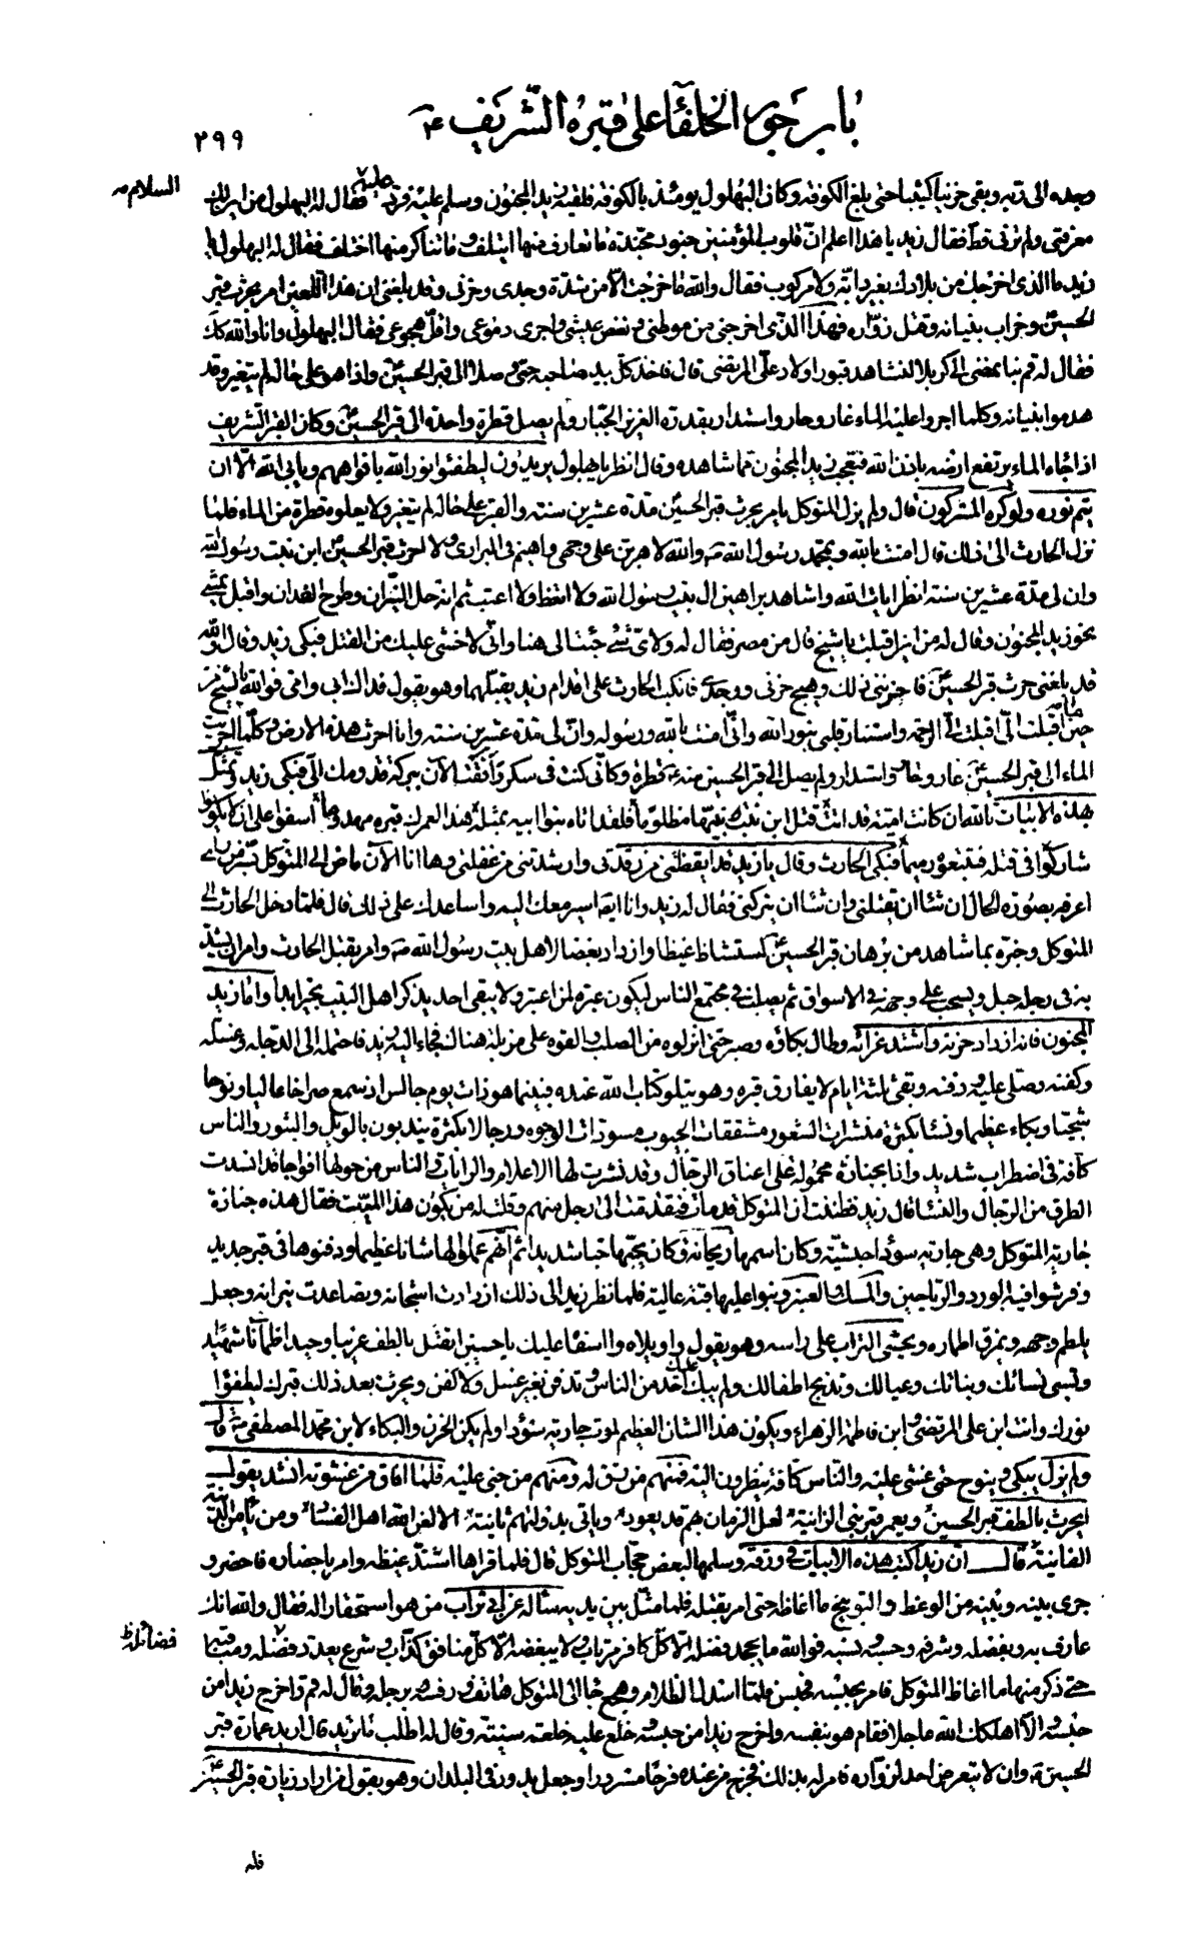 باب جور الخلفاء على قبره الشريف ع
٢٩٩
وجده الى ربه وبقى حزينا كئيبا حتى بلغ الكوفة وكان البهلول يومئذ بالكوفة فلقيه زيد المجنون وسلم عليه فرد عليه فقال له البهلول من اين لك
السلام
معرفتى ولم ترنى قط فقال زيد يا هذا اعلم ان قلوب المؤمنين جنود مجندة ما تعارف منها ائتلف وما تناكر منها اختلف فقال له البهلول يا
زيد ما الذى اخرجك من بلادك بغير دابة ولا مركوب فقال والله ما خرجت الا من شدة وجدى وحزنى وقد بلغنى ان هذا اللعين امر بحرث قبر
الحسين وخراب بنيانه وقتل زواره فهذا الذى اخرجنى من موطنى ونغص عيشى واجرى دموعى واقل هجوعى فقال البهلول وانا والله كذلك
فقال له قم بنا نمضى الى كربلا لنشاهد قبور اولاد على المرتضى قال فاخذ كل بيد صاحبه حتى وصلا الى قبر الحسين واذا هو على حاله لم يتغير وقد
هدموا بنيانه وكلما اجروا عليه الماء غار وحار واستدار بقدرة العزيز الجبار ولم يصل قطرة واحدة الى قبر الحسين وكان القبر الشريف
اذا جاءه الماء يرتفع ارضه باذن الله فتعجب زيد المجنون مما شاهده وقال انظر يا بهلول يريدون ليطفئوا نور الله بافواههم ويابى الله الا ان
يتم نوره ولو كره المشركون قال ولم يزل المتوكل يامر بحرث قبر الحسين مدة عشرين سنة والقبر على حاله لم يتغير ولا يعلوه قطرة من الماء فلما
نظر الحارث الى ذلك قال امنت بالله وبمحمد رسول الله ص والله لاهربن على وجهى واهيم فى البرارى ولا احرث قبر الحسين ابن بنت رسول الله
وان لى مدة عشرين سنة انظر ايات الله واشاهد براهين ال بيت رسول الله ولا اتعظ ولا اعتبر ثم انه حل الثيران وطرح الفدان واقبل يمشى
نحو زيد المجنون وقال له من اين اقبلت يا شيخ قال من مصر فقال له ولاى شئ جئت الى هنا وانى لاخشى عليك من القتل فبكى زيد وقال والله
قد بلغنى حرث قبر الحسين فاحزننى ذلك وهيج حزنى ووجدى فانكب الحارث على اقدام زيد يقبلهما وهو يقول فداك ابى وامى فوالله يا شيخ من
حين ما اقبلت الى اقبلت الى الرحمة واستنار قلبى بنور الله وانى امنت بالله ورسوله وان لى مدة عشرين سنة وانا احرث هذه الارض وكلما اجريت
الماء الى قبر الحسين غار وحار واستدار ولم يصل الى قبر الحسين منه قطرة وكانى كنت فى سكر وافقت الآن ببركة قدومك الى فبكى زيد وتمثل
بهذه الابيات تالله ان كانت امية قد اتت قتل ابن بنت نبيها مظلوما فلقد اتاه بنو ابيه بمثله هذا لعمرك قبره مهدوما اسفوا على ان لا يكونوا
شاركوا فى قتله فتتبعوه رميما فبكى الحارث وقال يا زيد قد ايقظتنى من رقدتى وارشدتنى من غفلتى وها انا الآن ماض الى المتوكل بسر من راى
اعرفه بصورة الحال ان شاء ان يقتلنى وان شاء ان يتركنى فقال له زيد وانا ايضا اسير معك اليه واساعدك على ذلك قال فلما دخل الحارث الى
المتوكل وخبره بما شاهد من برهان قبر الحسين استشاط غيظا وازداد بغضا لاهل بيت رسول الله ص وامر بقتل الحارث وامر ان يشد
به فى رجله حبل ويسحب على وجهه فى الاسواق ثم يصلب فى مجتمع الناس ليكون عبرة لمن اعتبر ولا يبقى احد يذكر اهل البيت بخير ابدا واما زيد
المجنون فانه ازداد حزنه واشتد عزائه وطال بكاؤه وصبر حتى انزلوه من الصلب والقوه على مزبلة هناك فجاء اليه زيد فاحتمله الى الدجلة وغسله
وكفنه وصلى عليه ودفنه وبقى ثلثة ايام لا يفارق قبره وهو يتلو كتاب الله عنده فبينما هو ذات يوم جالس اذ سمع صراخا عاليا ونوحا
شجيا وبكاء عظيما ونساء بكثرة منشرات الشعور مشققات الجيوب مسودات الوجوه ورجالا بكثرة يندبون بالويل والثبور والناس
كافة فى اضطراب شديد واذا بجنازة محمولة على اعناق الرجال وقد نشرت لها الاعلام والرايات والناس من حولها افواجا قد انسدت
الطرق من الرجال والنساء قال زيد فظننت ان المتوكل قد مات فتقدمت الى رجل منهم وقلت له من يكون هذا الميت فقال هذه جنازة
جارية المتوكل وهى جارية سوداء حبشية وكان اسمها ريحانة وكان يحبها حبا شديدا ثم انهم عملوا لها شانا عظيما ودفنوها فى قبر جديد
وفرشوا فيه الورد والرياحين والمسك والعنبر وبنوا عليها قبة عالية فلما نظر زيد الى ذلك ازدادت اشجانه وتصاعدت نيرانه وجعل
يلطم وجهه ويمزق اطماره ويحثى التراب على راسه وهو يقول واويلاه وا اسفاه عليك يا حسين اتقتل بالطف غريبا وحيدا ظمآنا شهيدا
وتسبى نساؤك وبناتك وعيالك وتذبح اطفالك ولم يبك عليك احد من الناس وتدفن بغير غسل ولا كفن ويحرث بعد ذلك قبرك ليطفؤا
نورك وانت ابن على المرتضى وابن فاطمة الزهراء ويكون هذا الشان العظيم لموت جارية سوداء ولم يكن الحزن والبكاء لابن محمد المصطفى ص قال
ولم يزل يبكى وينوح حتى غشى عليه والناس كافة ينظرون اليه فمنهم من رق له ومنهم من جنى عليه فلما افاق من غشوته انشد يقول
ايحرث بالطف قبر الحسين ويعمر قبر بنى الزانية لعل الزمان بهم قد يعود وياتى بدولتهم ثانية الا لعن الله اهل الفساد ومن يامن الدنية
الفانية قال ان زيدا كتب هذه الابيات فى ورقة وسلمها لبعض حجاب المتوكل قال فلما قراها اشتد غيظه وامر باحضاره فاحضر و
جرى بينه وبينه من الوعظ والتوبيخ ما اغاظه حتى امر بقتله فلما مثل بين يديه سأله عن ابى تراب من هو استحقارا له فقال والله انك
عارف به وبفضله وشرفه وحسبه ونسبه فوالله ما يجحد فضله الا كل كافر مرتاب ولا يبغضه الا كل منافق كذاب وشرع يعدد فضله ومناقبه
فضائله
حتى ذكر منها ما اغاظ المتوكل فامر بحبسه فحبس فلما اسدل الظلام وهجع جاء الى المتوكل هاتف ورفسه برجله وقال له قم واخرج زيدا من
حبسه والا اهلكك الله عاجلا فقام هو بنفسه واخرج زيدا من حبسه وخلع عليه خلعة سنية وقال له اطلب ما تريد قال اريد عمارة قبر
الحسين وان لا يتعرض احد لزواره فامر له بذلك فخرج من عنده فرحا مسرورا وجعل يدور فى البلدان وهو يقول من اراد زيارة قبر الحسين
فله